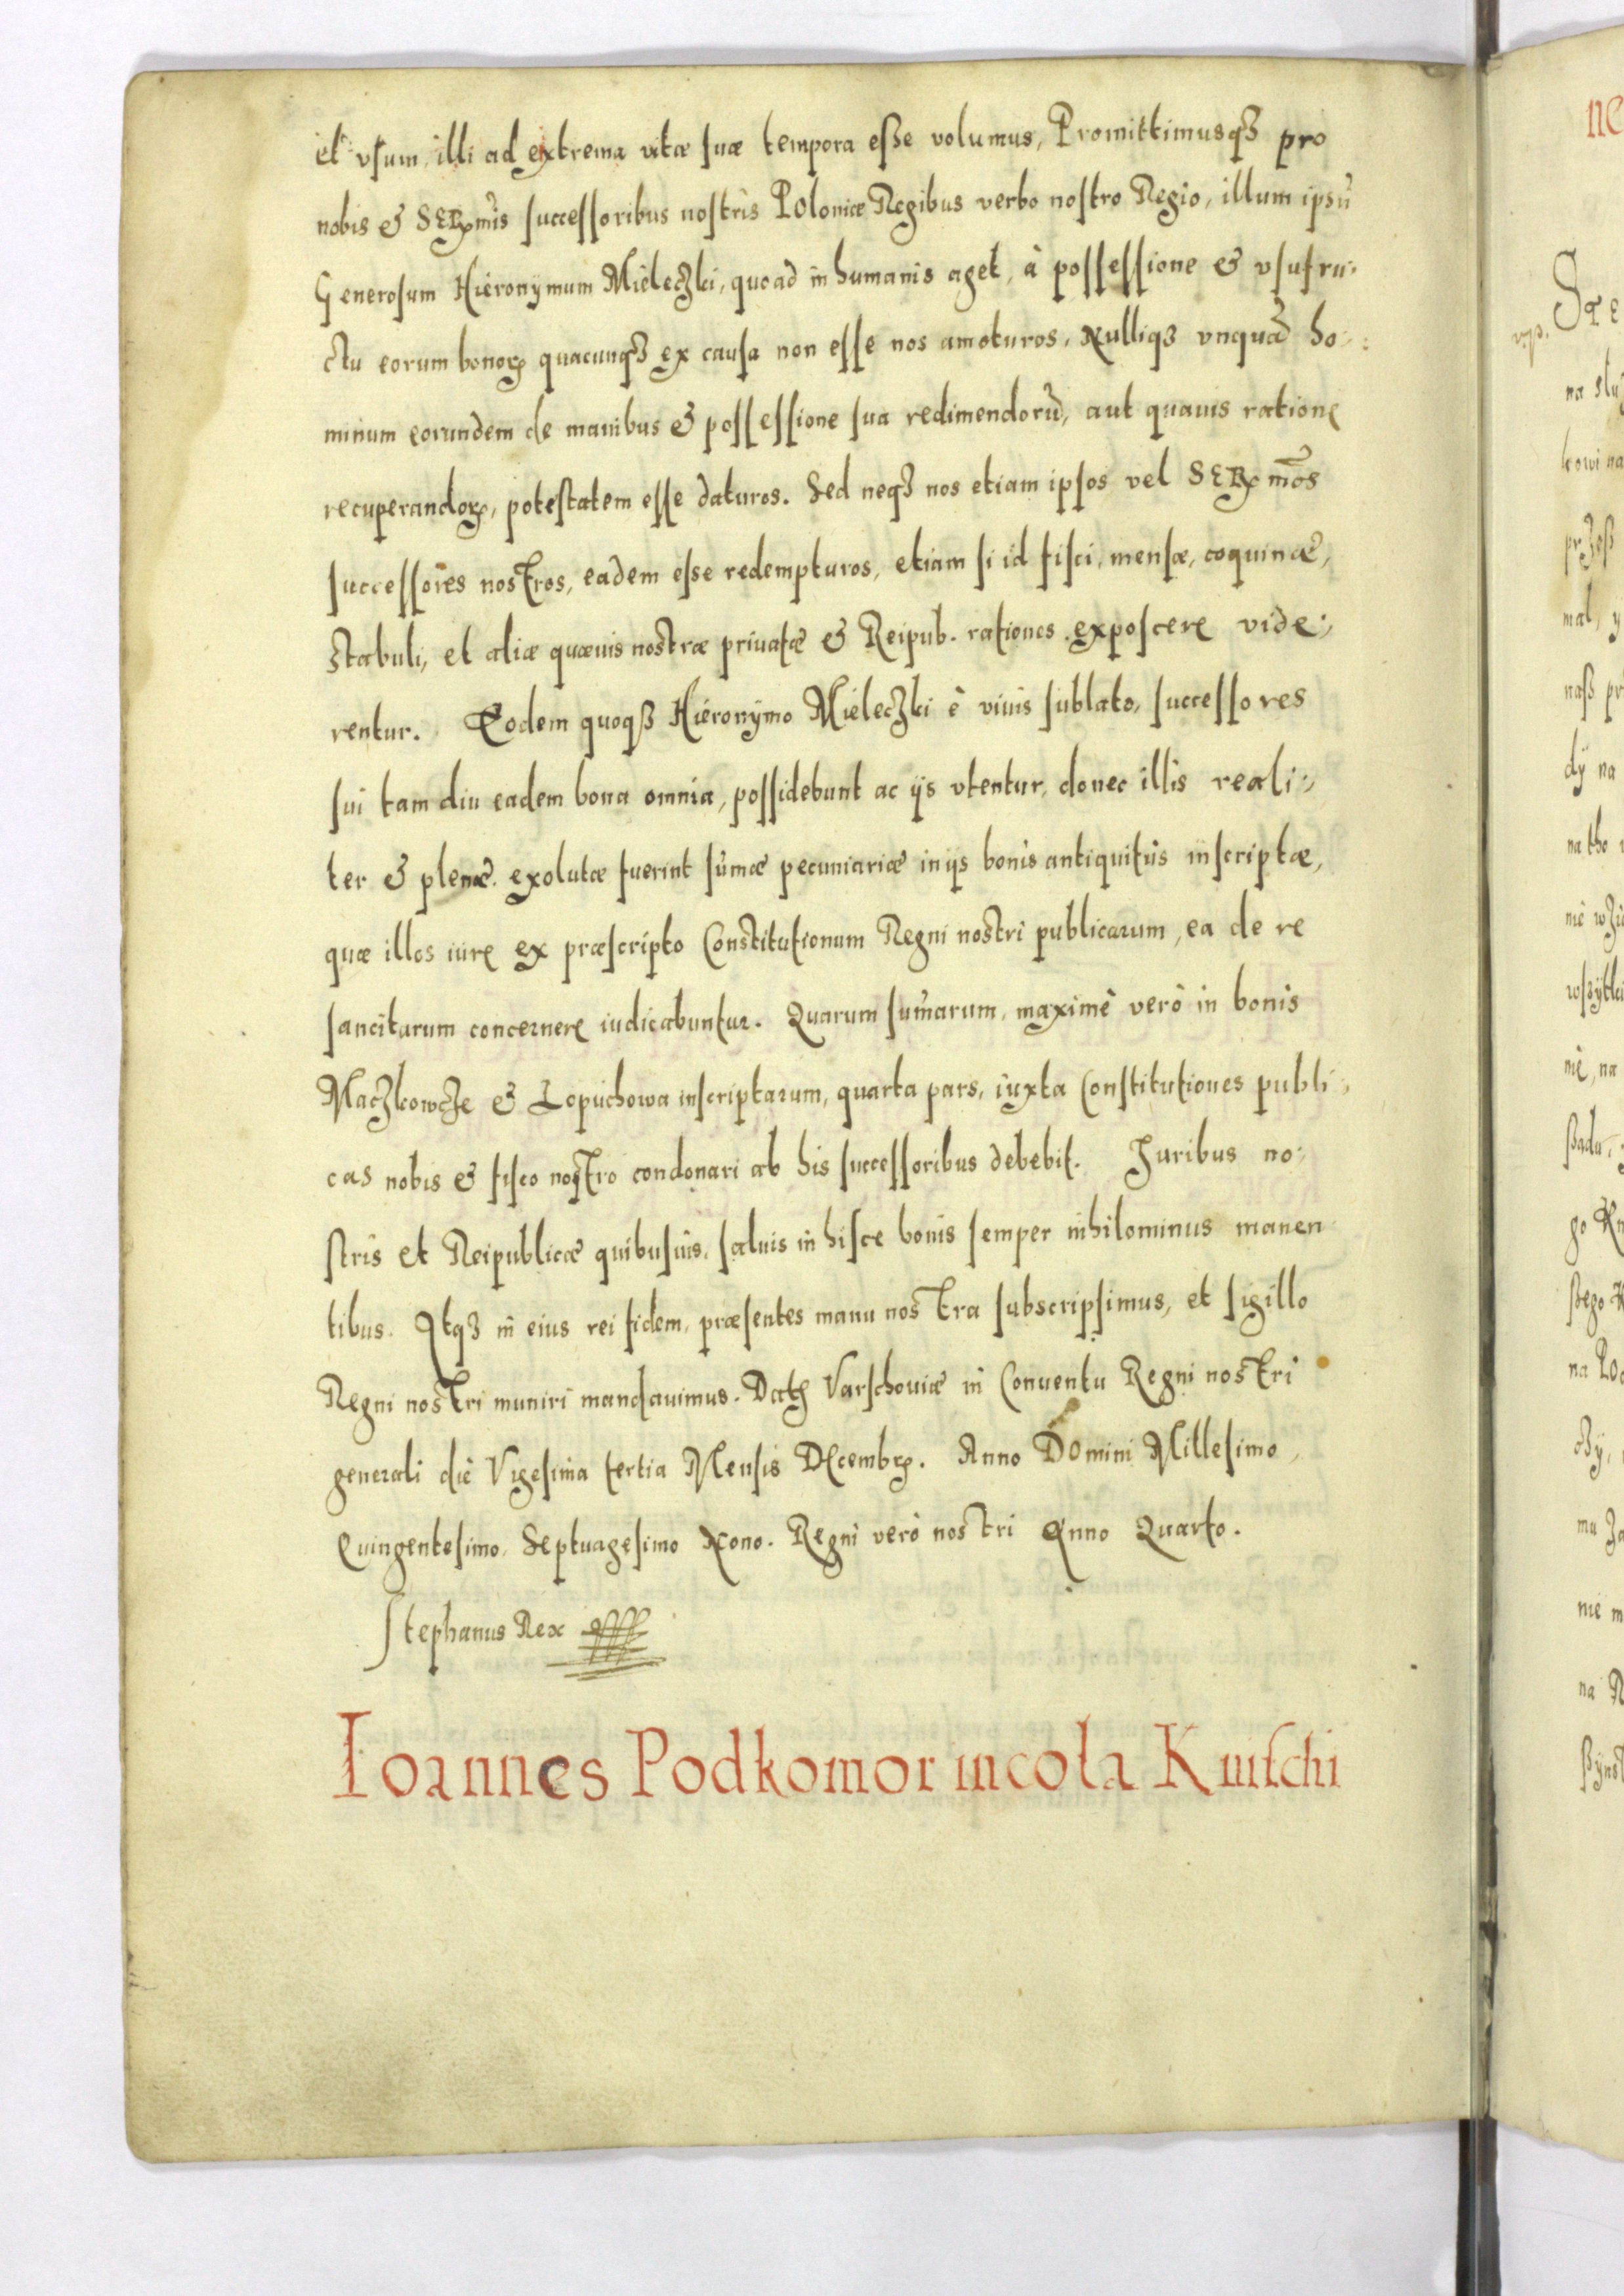 et vsum illi ad extrema vitæ suæ tempora esse volumus, Promittimusqꝫ pro
nobis & SERmis successoribus nostris Poloniæ Regibus verbo nostro Regio, illum ipsũ
Generosum Hieronymum Mieleczki, quoad in humanis aget, à possessione & vsufru-
ctu eorum bonoꝝ quacunqꝫ ex causa non esse nos amoturos, Nulliqꝫ vnquã ho-
minum eorundem de manibus & possessione sua redimendorũ, aut quauis ratione
recuperandoꝝ, potestatem esse daturos. Sed neqꝫ nos etiam ipsos vel SERmos
successores nostros, eadem esse redempturos, etiam si id fisci, mensæ, coquinæ,
stabuli, et aliæ quæuis nostræ priuatæ & Reipub. rationes exposcere vide-
rentur. Eodem quoqꝫ Hieronymo Mieleczki è viuis sublato, successores
sui tam diu eadem bona omnia, possidebunt ac ijs vtentur, donec illis reali-
ter & plenæ exolutæ fuerint sum̃æ pecuniariæ in ijs bonis antiquitùs inscriptæ,
quæ illos iure ex præscripto Constitutionum Regni nostri publicarum, ea de re
sancitarum concernere iudicabuntur. Quarum sum̃arum, maximè verò in bonis
Maczkowcze & Lopuchowa inscriptarum, quarta pars, iuxta Constitutiones publi-
cas nobis & fisco nostro condonari ab his successoribus debebit. Juribus no-
stris et Reipublicæ quibusuis, saluis in hisce bonis semper nihilominus manen
tibus. Itqꝫ in eius rei fidem, præsentes manu nostra subscripsimus, et sigillo
Regni nostri muniri mandauimus. Datꝭ Varschouiæ in Conuentu Regni nostri
generali die Vigesima tertia Mensis Decembꝝ. Anno Domini Millesimo,
Quingentesimo, Septuagesimo Nono. Regni verò nostri Anno Quarto.
Stephanus Rex
Ioannes Podkomor incola Kuischi